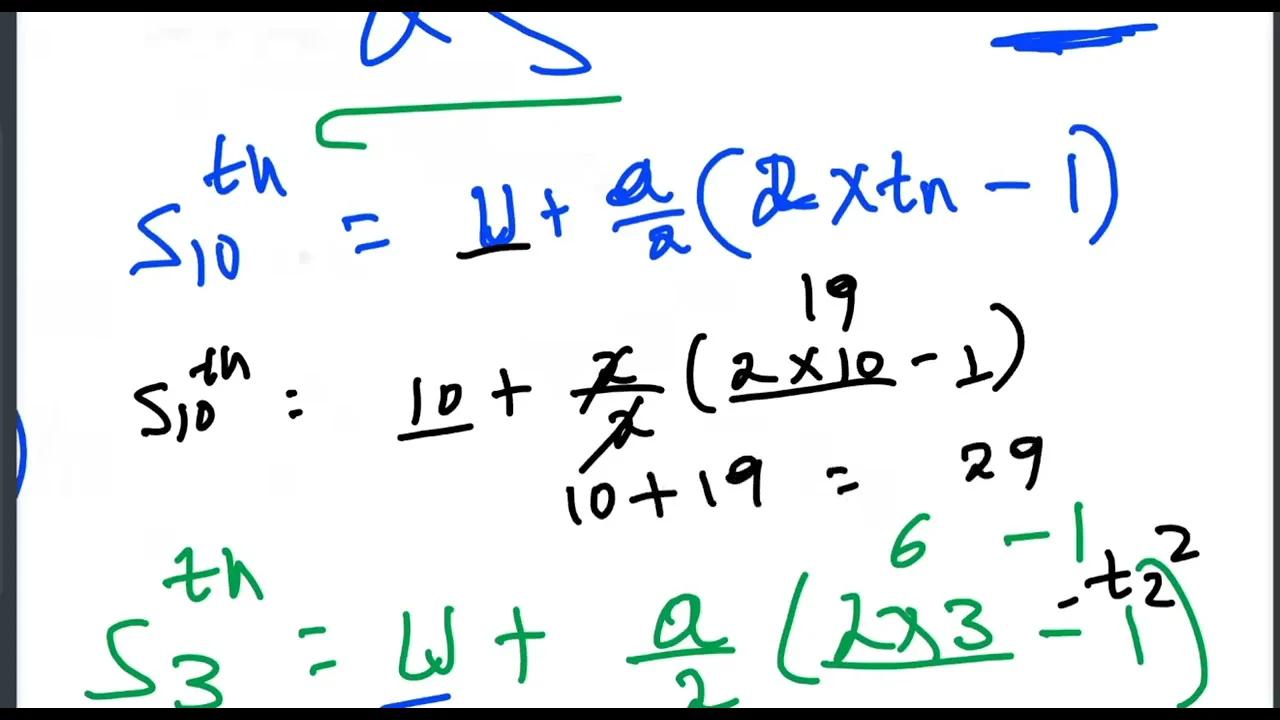 S₁₀ᵗʰ = u + a/2 (2 × tn − 1)
19
S₁₀ᵗʰ = 10 + 2/2 (2 × 10 − 1)
10 + 19 = 29
6 − 1
S₃ᵗʰ = u + a/2 (2 × 3 − 1)
= t₂²